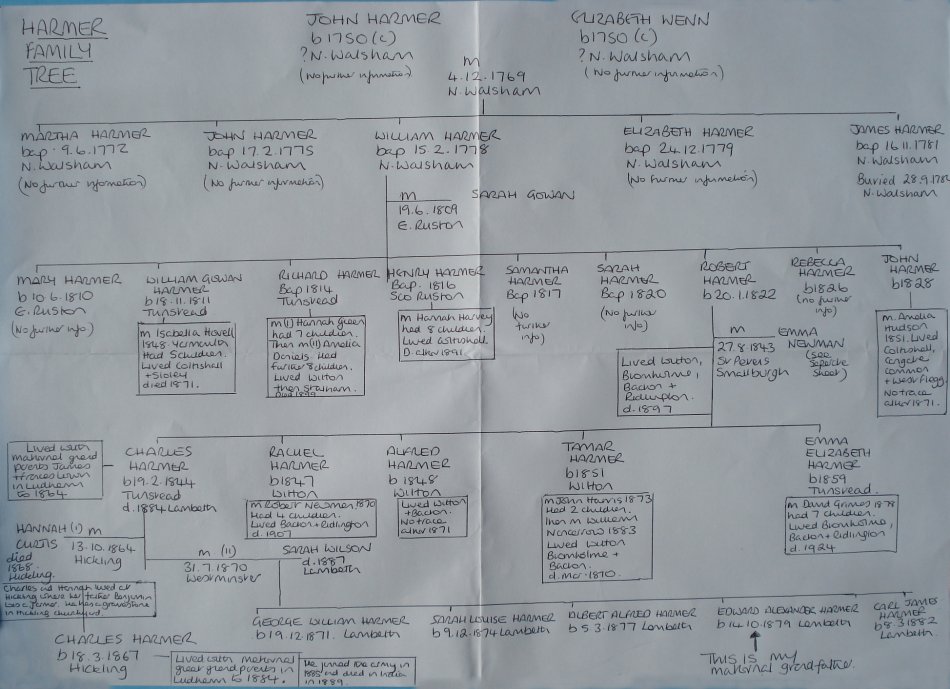 HARMER
FAMILY
TREE
JOHN HARMER
b 1750 (c)
? N. Walsham
(No further information)
ELIZABETH WENN
b 1750 (c)
? N. Walsham
(No further information)
m
4.12.1769
N. Walsham
MARTHA HARMER
bap. 9.6.1772
N. Walsham
(No further information)
JOHN HARMER
bap 17.2.1775
N. Walsham
(No further information)
WILLIAM HARMER
bap 15.2.1778
N. Walsham
ELIZABETH HARMER
bap 24.12.1779
N. Walsham
(No further information)
JAMES HARMER
bap 16.11.1781
N. Walsham
Buried 28.9.178
N. Walsham
m
19.6.1809
E. Ruston
SARAH GOWAN
MARY HARMER
b 10.6.1810
E. Ruston
(No further info)
WILLIAM GOWAN
HARMER
b 18.11.1811
Tunstead
m Isabella Howell
1848.
Had 5 children.
Lived Coltishall
+ Sloley
died 1871.
RICHARD HARMER
Bap 1814
Tunstead
m (1) Hannah Green
had 7 children.
Then m (11) Amelia
Daniels. Had
further 8 children.
Lived Witton
then Stalham.
Died 1899
HENRY HARMER
Bap. 1816
Sco Ruston
m Hannah Harvey
had 8 children.
Lived Coltishall
D. after 1891
SAMANTHA
HARMER
Bap 1817
(No
further
info)
SARAH
HARMER
Bap 1820
(No further
info)
ROBERT
HARMER
b 20.1.1822
REBECCA
HARMER
b 1826
(no further
info)
JOHN
HARMER
b 1828
m. Amelia
Hudson
1851. Lived
Coltishall,
common
+ West Flegg
No trace
after 1871.
m
27.8.1843
St Peters
Smallburgh
EMMA
NEWMAN
(see
separate
sheet)
Lived Witton,
Bromholme,
Bacton +
Ridlington.
d. 1897
Lived with
maternal grand
parents James
+ Frances
in Ludham
to 1864
CHARLES
HARMER
b 19.2.1844
Tunstead
d. 1884 Lambeth
RACHEL
HARMER
b 1847
Witton
m Robert Newman 1870
Had 4 children.
Lived Bacton + Ridlington
d. 1907
ALFRED
HARMER
b 1848
Witton
Lived Witton
+ Bacton.
No trace
after 1871
TAMAR
HARMER
b 1851
Witton
m John Harris 1873
Had 2 children.
Then m William
1883
Lived Witton
Bromholme +
Bacton.
EMMA
ELIZABETH
HARMER
b 1859
Tunstead.
m David Grimes 1878
had 7 children.
Lived Bromholme,
Bacton + Ridlington
d. 1924
HANNAH (1) m
CURTIS
died
1868.
Hickling.
13.10.1864
Hickling
m (11)
31.7.1870
Westminster
SARAH WILSON
d. 1887
Lambeth
Charles and Hannah lived at
Hickling where her father Benjamin
was a farmer. He has a gravestone
in Hickling churchyard.
GEORGE WILLIAM HARMER
b 19.12.1871. Lambeth
SARAH LOUISE HARMER
b 9.12.1874 Lambeth
ALBERT ALFRED HARMER
b 5.3.1877 Lambeth
EDWARD ALEXANDER HARMER
b 14.10.1879 Lambeth
CARL JAMES
HARMER
b 8.3.1882
Lambeth.
CHARLES HARMER
b 18.3.1867
Hickling
Lived with maternal
great grandparents in
Ludham to 1884.
He joined the army in
1885 and died in India
in 1889.
This is my
maternal grandfather.